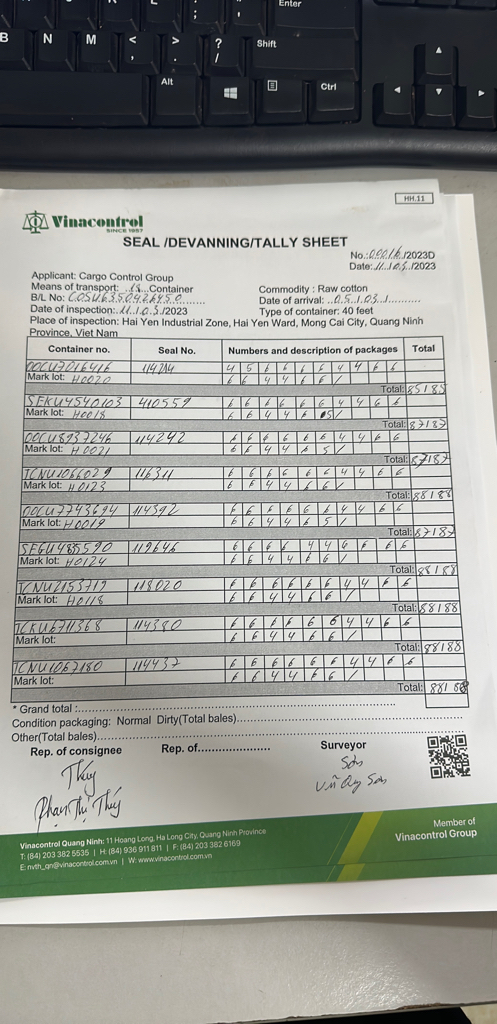 Enter
B N M < , > . ? / Shift
Alt Ctrl
HH.11
Vinacontrol
SINCE 1957
SEAL /DEVANNING/TALLY SHEET
No.:00016/2023D
Date:11.05/2023
Applicant: Cargo Control Group
Means of transport: 18 Container Commodity : Raw cotton
B/L No: COSU6350426450 Date of arrival: 05.03
Date of inspection: 11.05/2023 Type of container: 40 feet
Place of inspection: Hai Yen Industrial Zone, Hai Yen Ward, Mong Cai City, Quang Ninh
Province, Viet Nam
Container no. Seal No. Numbers and description of packages Total
OOCU7216416 114214 4 5 6 6 6 6 4 4 6 6
Mark lot: H0020 6 6 4 4 6 6 /
Total: 85 185
SEKU4540103 410559 6 6 6 6 6 6 4 4 6 6
Mark lot: H0018 6 6 4 4 6 5 /
Total: 87 187
OOCU8937246 114242 6 6 6 6 6 6 4 4 6 6
Mark lot: H0021 6 6 4 4 6 5 /
Total: 87 187
TCNU1066029 116311 6 6 6 6 6 6 4 4 6 6
Mark lot: H0123 6 6 4 4 6 6 /
Total: 88 188
OOCU7743694 114392 6 6 6 6 6 6 4 4 6 6
Mark lot: H0019 6 6 4 4 6 5 /
Total: 87 187
119646 6 6 6 6 4 4 6 6 6 6
Mark lot: H0124 6 6 4 4 6 6 /
Total: 88 188
TCNU2153719 118020 6 6 6 6 6 6 4 4 6 6
Mark lot: H0118 6 6 4 4 6 6 /
Total: 88 188
TCKU6711368 114380 6 6 6 6 6 6 4 4 6 6
Mark lot: 6 6 4 4 6 6 /
Total: 88 188
TCNU1067180 114437 6 6 6 6 6 6 4 4 6 6
Mark lot: 6 6 4 4 6 6 /
Total: 88 188
* Grand total :
Condition packaging: Normal Dirty(Total bales)
Other(Total bales)
Rep. of consignee Rep. of Surveyor
Thúy Sơn
Phạm Thị Thúy Vũ Quý Sơn
Vinacontrol Quang Ninh: 11 Hoang Long, Ha Long City, Quang Ninh Province
T: (84) 203 382 5535 | H: (84) 936 911 811 | F: (84) 203 382 6169
E: nvth_qn@vinacontrol.com.vn | W: www.vinacontrol.com.vn
Member of
Vinacontrol Group